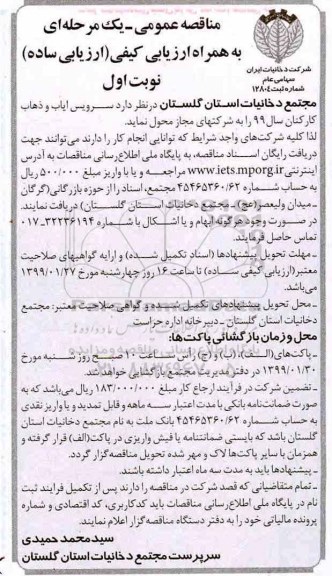 مناقصه عمومی - یک مرحله‌ای
به همراه ارزیابی کیفی (ارزیابی ساده)
نوبت اول
شرکت دخانیات ایران
سهامی عام
شماره ثبت ۱۲۸۰۴
مجتمع دخانیات استان گلستان در نظر دارد سرویس ایاب و ذهاب
کارکنان سال ۹۹ را به شرکتهای مجاز محول نماید.
لذا کلیه شرکت‌های واجد شرایط که توانایی انجام کار را دارند می‌توانند جهت
دریافت رایگان اسناد مناقصه، به پایگاه ملی اطلاع‌رسانی مناقصات به آدرس
اینترنتی www.iets.mporg.ir مراجعه و یا با واریز مبلغ ۵۰۰/۰۰۰ ریال
به حساب شماره ۴۵۴۶۵۳۶۰/۶۲ مجتمع، اسناد را از حوزه بازرگانی (گرگان
- میدان ولیعصر (عج) - مجتمع دخانیات استان گلستان) دریافت نمایند.
در صورت وجود هرگونه ابهام و یا اشکال با شماره ۳۲۲۳۶۱۹۴-۰۱۷
تماس حاصل فرمایند.
- مهلت تحویل پیشنهادها (اسناد تکمیل شده) و ارایه گواهیهای صلاحیت
معتبر (ارزیابی کیفی ساده) تا ساعت ۱۶ روز چهارشنبه مورخ ۱۳۹۹/۰۱/۲۷
می‌باشد.
- محل تحویل پیشنهادهای تکمیل شده و گواهی صلاحیت معتبر: مجتمع
دخانیات استان گلستان - دبیرخانه اداره حراست
محل و زمان بازگشائی پاکت‌ها:
- پاکت‌های (الف)، (ب) و (ج) راس ساعت ۱۰ صبح روز شنبه مورخ
۱۳۹۹/۰۱/۳۰ در دفتر مدیریت مجتمع بازگشایی خواهد شد.
- تضمین شرکت در فرآیند ارجاع کار مبلغ ۱۸۳/۰۰۰/۰۰۰ ریال می‌باشد که به
صورت ضمانت‌نامه بانکی با مدت اعتبار سه ماهه و قابل تمدید و یا واریز نقدی
به حساب شماره ۴۵۴۶۵۳۶۰/۶۲ بانک ملت به نام مجتمع دخانیات استان
گلستان باشد که بایستی ضمانتنامه یا فیش واریزی در پاکت (الف) قرار گرفته و
همزمان با سایر پاکت‌ها لاک و مهر شده تحویل مناقصه‌گزار گردد.
- پیشنهادها باید به مدت سه ماه اعتبار داشته باشند.
- تمام متقاضیانی که قصد شرکت در مناقصه را دارند پس از تکمیل فرایند ثبت
نام در پایگاه ملی اطلاع‌رسانی مناقصات باید کدکاربری، کد اقتصادی و شماره
پرونده مالیاتی خود را به دفتر دستگاه مناقصه‌گزار اعلام نمایند.
سید محمد حمیدی
سرپرست مجتمع دخانیات استان گلستان